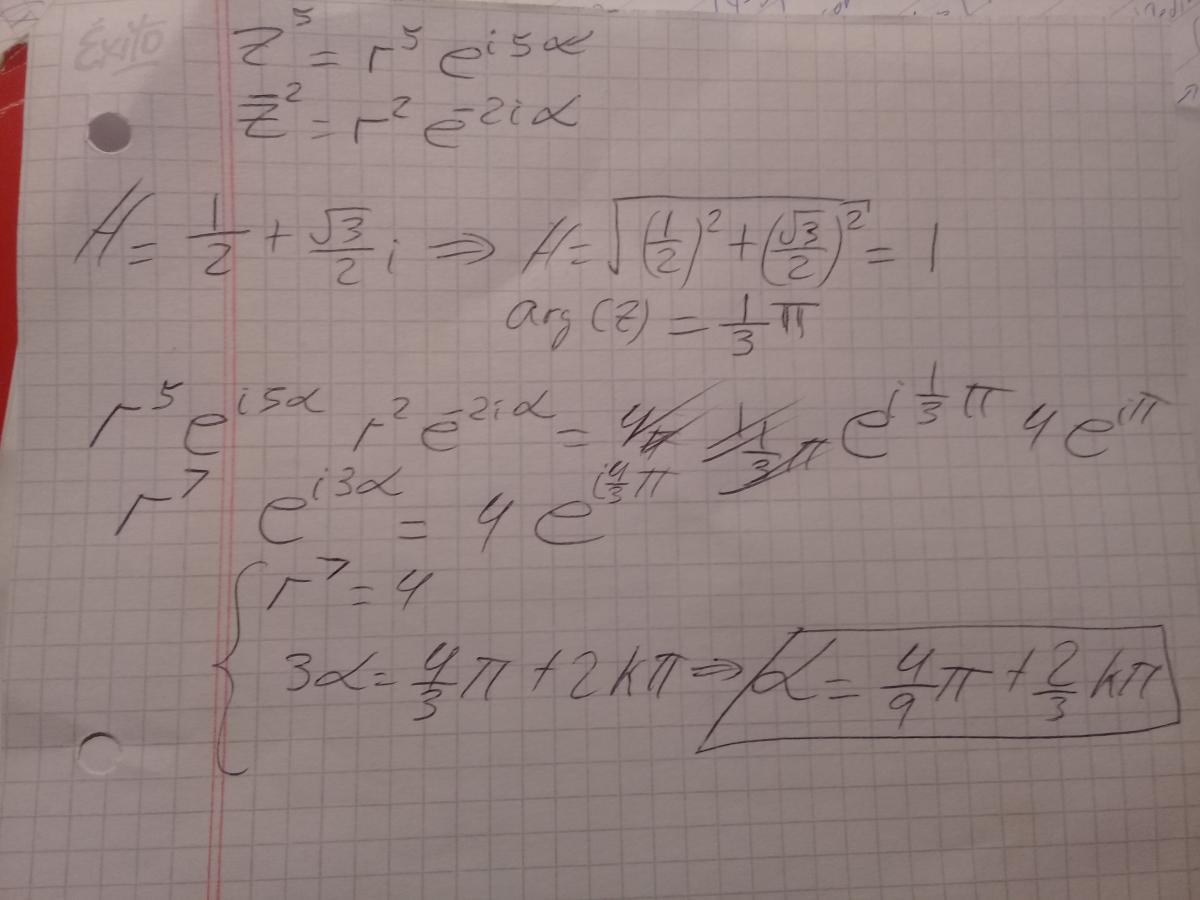 Exiyo
z⁵ = r⁵ e^{i5α}
z̄² = r² e^{-2iα}
H = 1/2 + √3/2 i ⇒ H = √((1/2)² + (√3/2)²) = 1
arg(z) = 1/3 π
r⁵ e^{i5α} r² e^{-2iα} = e^{i 1/3 π} 4 e^{iπ}
r⁷ e^{i3α} = 4 e^{i 4/3 π}
r⁷ = 4
3α = 4/3 π + 2kπ ⇒ α = 4/9 π + 2/3 kπ